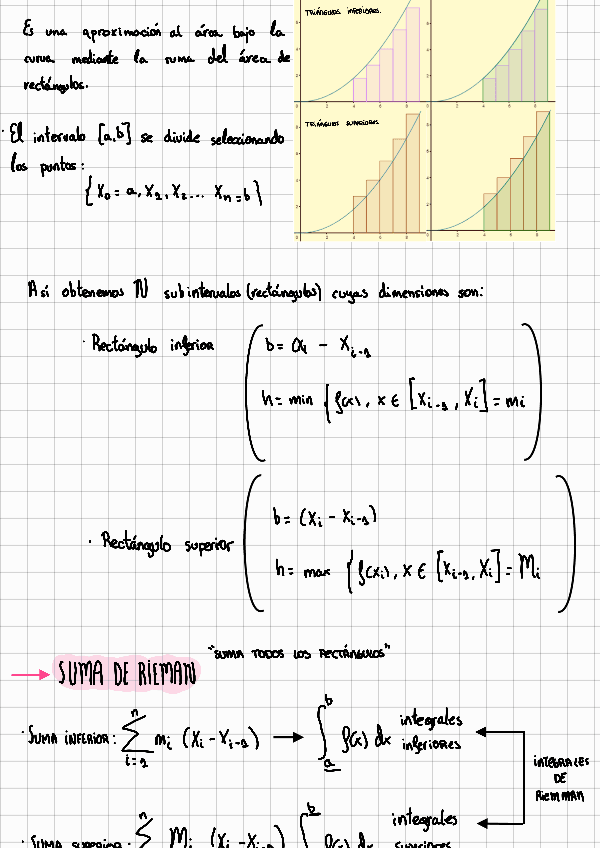 Es una aproximación al área bajo la
curva mediante la suma del área de
rectángulos.
TRIÁNGULOS INFERIORES.
TRIÁNGULOS SUPERIORES
· El intervalo [a,b] se divide seleccionando
los puntos:
{X₀ = a, X₁, X₂... Xₙ = b}
Así obtenemos N subintervalos (rectángulos) cuyas dimensiones son:
· Rectángulo inferior
b = αi - Xi-1
h = min {f(x), x ∈ [Xi-1, Xi] = mi
· Rectángulo superior
b = (Xi - Xi-1)
h = max {f(xi), x ∈ [Xi-1, Xi] = Mi
"SUMA TODOS LOS RECTÁNGULOS"
→ SUMA DE RIEMAN
· SUMA INFERIOR: n ∑ i=1 mi (Xi - Xi-1) → ∫ b a f(x) dx integrales
inferiores
INTEGRALES
DE
RIEMMAN
· SUMA SUPERIOR: n ∑ Mi (Xi - Xi-1) ∫ b f(x) dx integrales
superiores